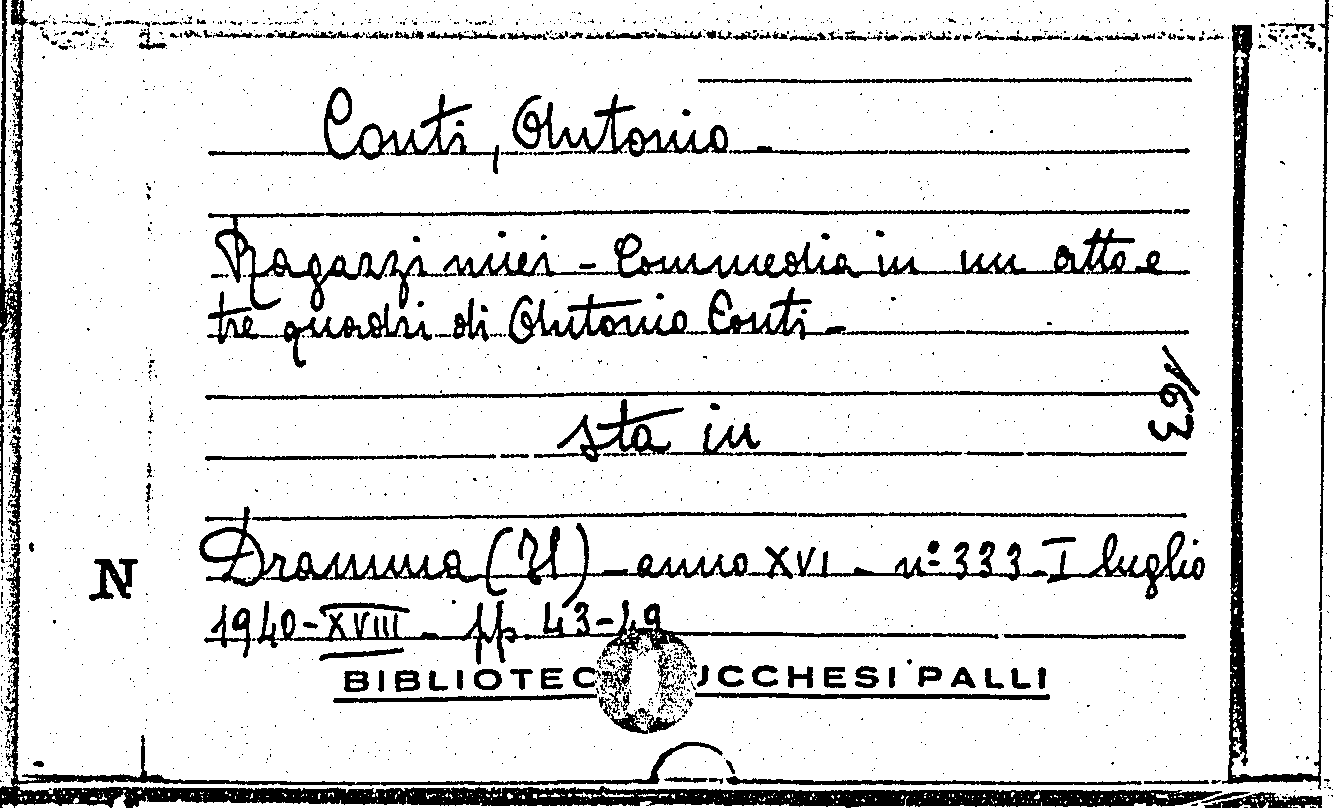 Conti, Antonio -
Ragazzi miei - Commedia in un atto e
tre quadri di Antonio Conti -
163
sta in
Dramma (Il) - anno XVI - n° 333 - I luglio
N
1940 - XVIII - pp. 43-49
BIBLIOTEC UCCHESI PALLI